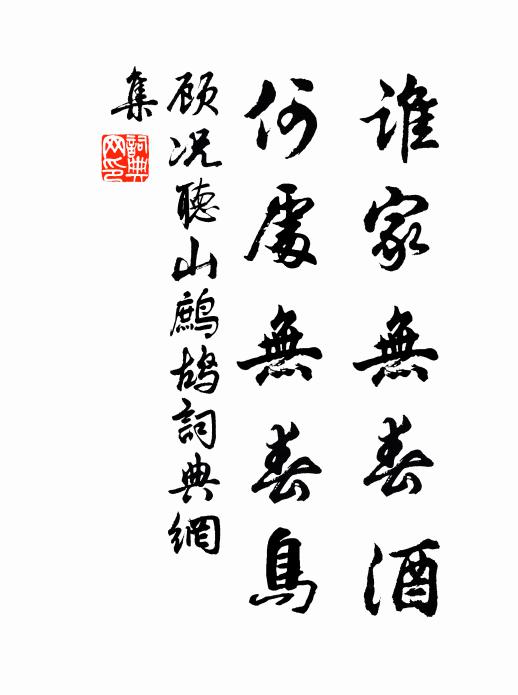 誰家無春酒
何處無春鳥
顧况聽山鷓鴣詞典網
集
詞典網印